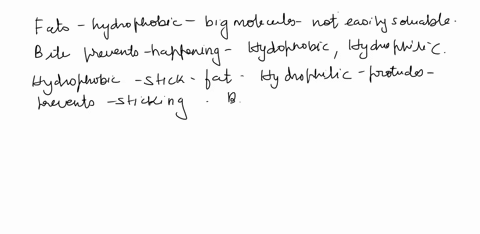 Fats - hydrophobic - big molecules - not easily soluable.
Bile prevents - happening - Hydophobic, Hydrophilic.
Hydrophobic - stick - fat - Hydrophilic - protudes -
prevents - sticking . B